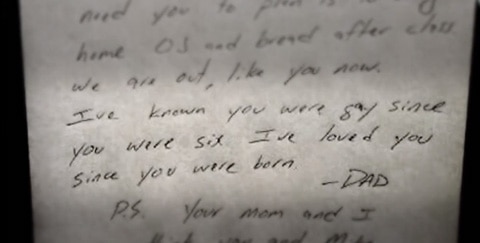 need you to plan is to
home OJ and bread after class
we are out, like you now.
I've known you were gay since
you were six I've loved you
since you were born.
—DAD
P.S. Your mom and I
think you and Mike